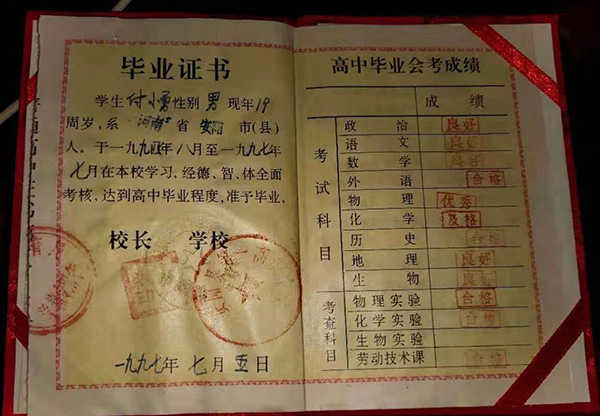 毕业证书
学生付小勇性别男现年19
周岁，系河南省安阳市(县)
人。于一九九四年八月至一九九七年
七月在本校学习，经德、智、体全面
考核，达到高中毕业程度，准予毕业。
校长 学校
一九九七年七月五日
高中毕业会考成绩
成绩
考试科目
政治 良好
语文 良好
数学 良好
外语 合格
物理 优秀
化学 及格
历史 合格
地理 良好
生物 良好
考查科目
物理实验 合格
化学实验 合格
生物实验
劳动技术课 合格